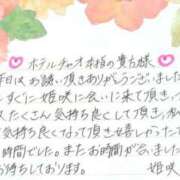 ホテルチャオ本館の貴方様
昨日はお誘い頂きありがとうございました
すぐに姫咲に会いに来て頂き、
たくさん気持ち良くして頂い
気持ち良くなって頂き嬉しかったで
時間でした。またお時間が合いまし
お待ちしております。
姫咲